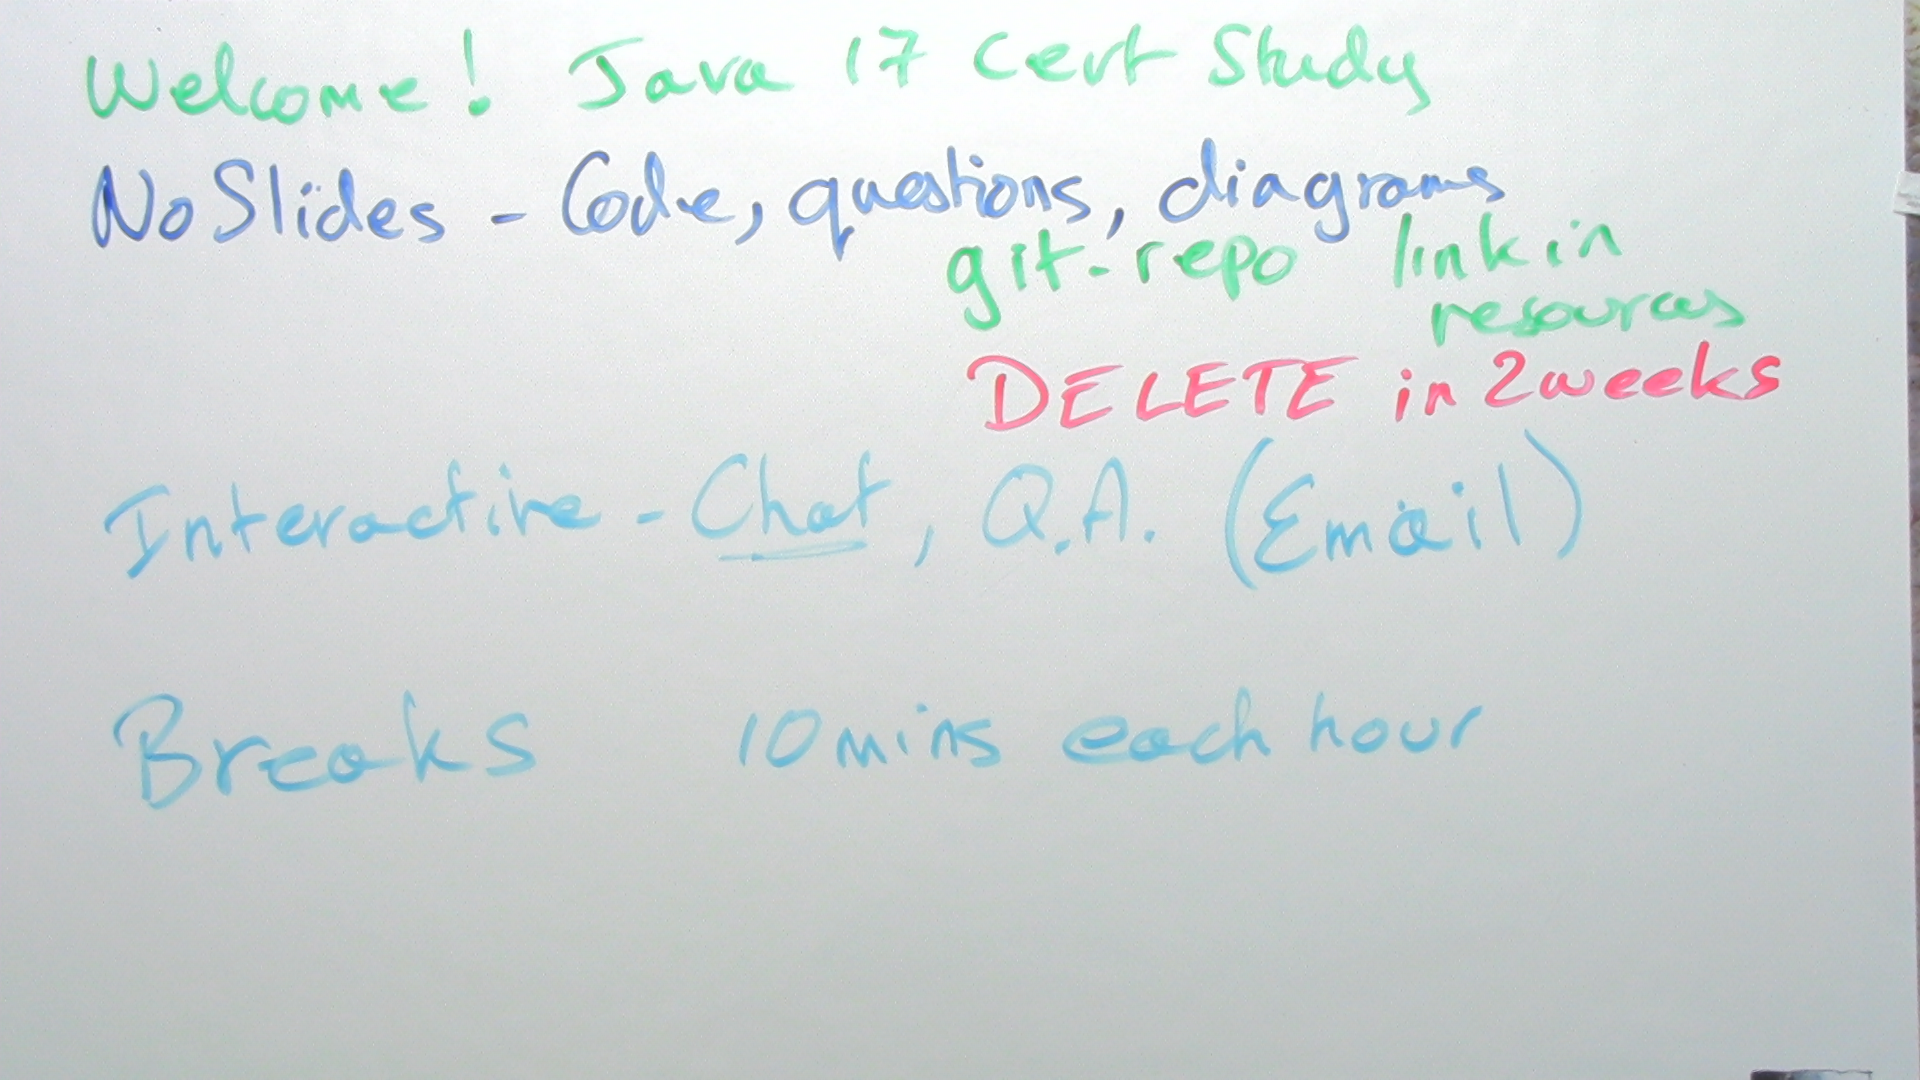 Welcome! Java 17 Cert Study
No Slides - Code, questions, diagrams
git-repo link in
resources
DELETE in 2 weeks
Interactive - Chat, Q.A. (Email)
Breaks 10 mins each hour